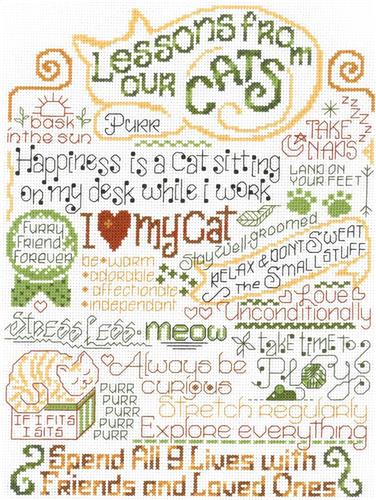 Lessons from
our CATS
bask
in the sun
Purr
z z z z z
TAKE
NAPS
Happiness is a cat sitting
on my desk while i work
LAND ON
YOUR FEET
Furry
Friend
Forever
I ❤ my Cat
be • warm
• adorable
• affectionate
• independant
Stay well-groomed
RELAX & DON'T SWEAT
the SMALL STUFF
Love
Unconditionally
STRESS LESS
meow
take time to
PLAY
Always be
curious
PURR
PURR
PURR
PURR
PURR
IF I FITS
I SITS
Stretch Regularly
Explore everything
Spend All 9 Lives with
Friends and Loved Ones